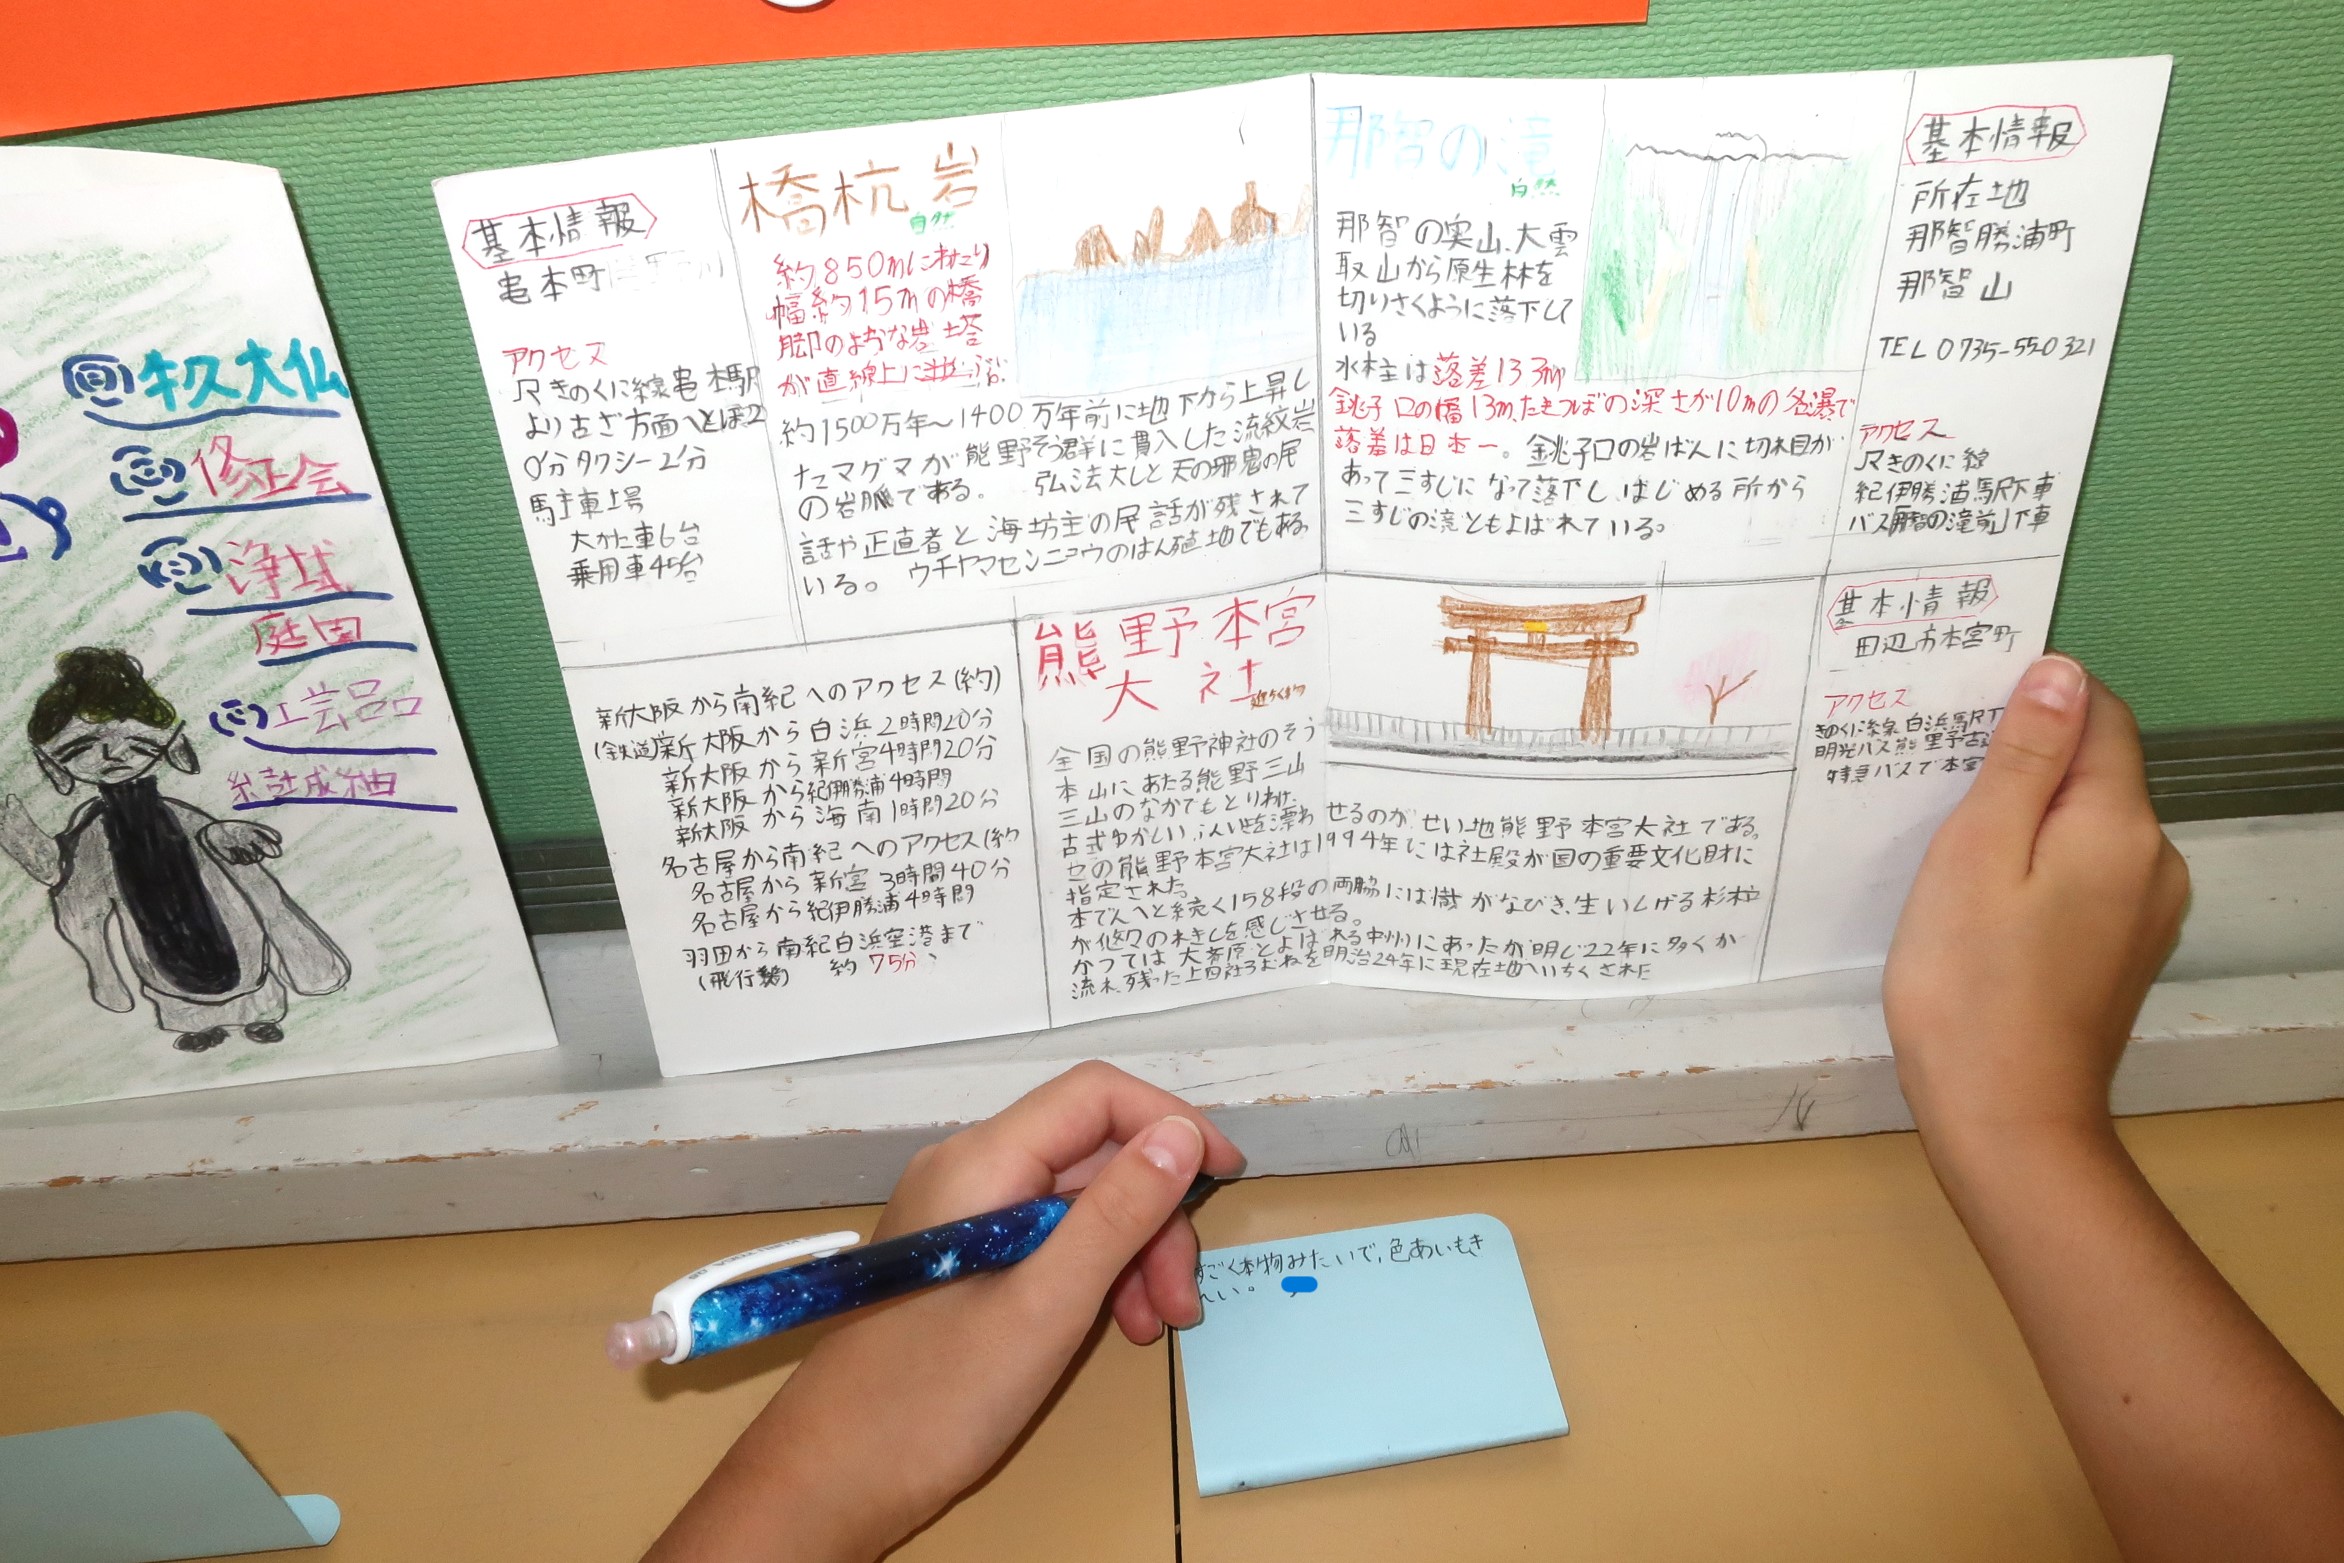 牛久大仏
修正会
浄域
庭園
工芸品
結城紬
基本情報
串本町
アクセス
JRきのくに線串本駅
より古ざ方面へとほ2
0分タクシー2分
駐車場
大がた車6台
乗用車45台
橋杭岩
自然
約850mにわたり
幅約15mの橋
脚のような岩塔
が直線上に並ぶ
約1500万年〜1400万年前に地下から上昇し
たマグマが熊野そう群に貫入した流紋岩
の岩脈である。弘法大しと天の邪鬼の民
話や正直者と海坊主の民話が残されて
いる。ウチヤマセンニュウのはん殖地でもある。
那智の滝
自然
那智の実山、大雲
取山から原生林を
切りさくように落下して
いる
水柱は落差133m
銚子口の幅13m、たきつぼの深さが10mの名瀑で
落差は日本一。銚子口の岩ばんに切れ目が
あって三すじになって落下しはじめる所から
三すじの滝ともよばれている。
基本情報
所在地
那智勝浦町
那智山
TEL 0735-550321
アクセス
JRきのくに線
紀伊勝浦駅下車
バス「那智の滝前」下車
新大阪から南紀へのアクセス(約)
(鉄道)新大阪から白浜2時間20分
新大阪から新宮4時間20分
新大阪から紀伊勝浦4時間
新大阪から海南1時間20分
名古屋から南紀へのアクセス(約
名古屋から新宮3時間40分
名古屋から紀伊勝浦4時間
羽田から南紀白浜空港まで
(飛行機) 約75分
熊野本宮
大社
建ちく物
全国の熊野神社のそう
本山にあたる熊野三山
三山のなかでもとりわけ
古式ゆかしいふんいきを漂わせるのが、せい地熊野本宮大社である。
その熊野本宮大社は1994年には社殿が国の重要文化財に
指定された
本でんへと続く158段の両脇には幟がなびき、生いしげる杉粒
が悠々の木きしを感じさせる。
かつては大斎原とよばれる中州にあったが明じ22年に多くが
流れ、残った上四社3おねを明治24年に現在地へいちくされた
基本情報
田辺市本宮町
アクセス
きのくに線白浜駅下
明光バス熊野古道
特急バスで本宮
すごく本物みたいで、色あいもき
れい。